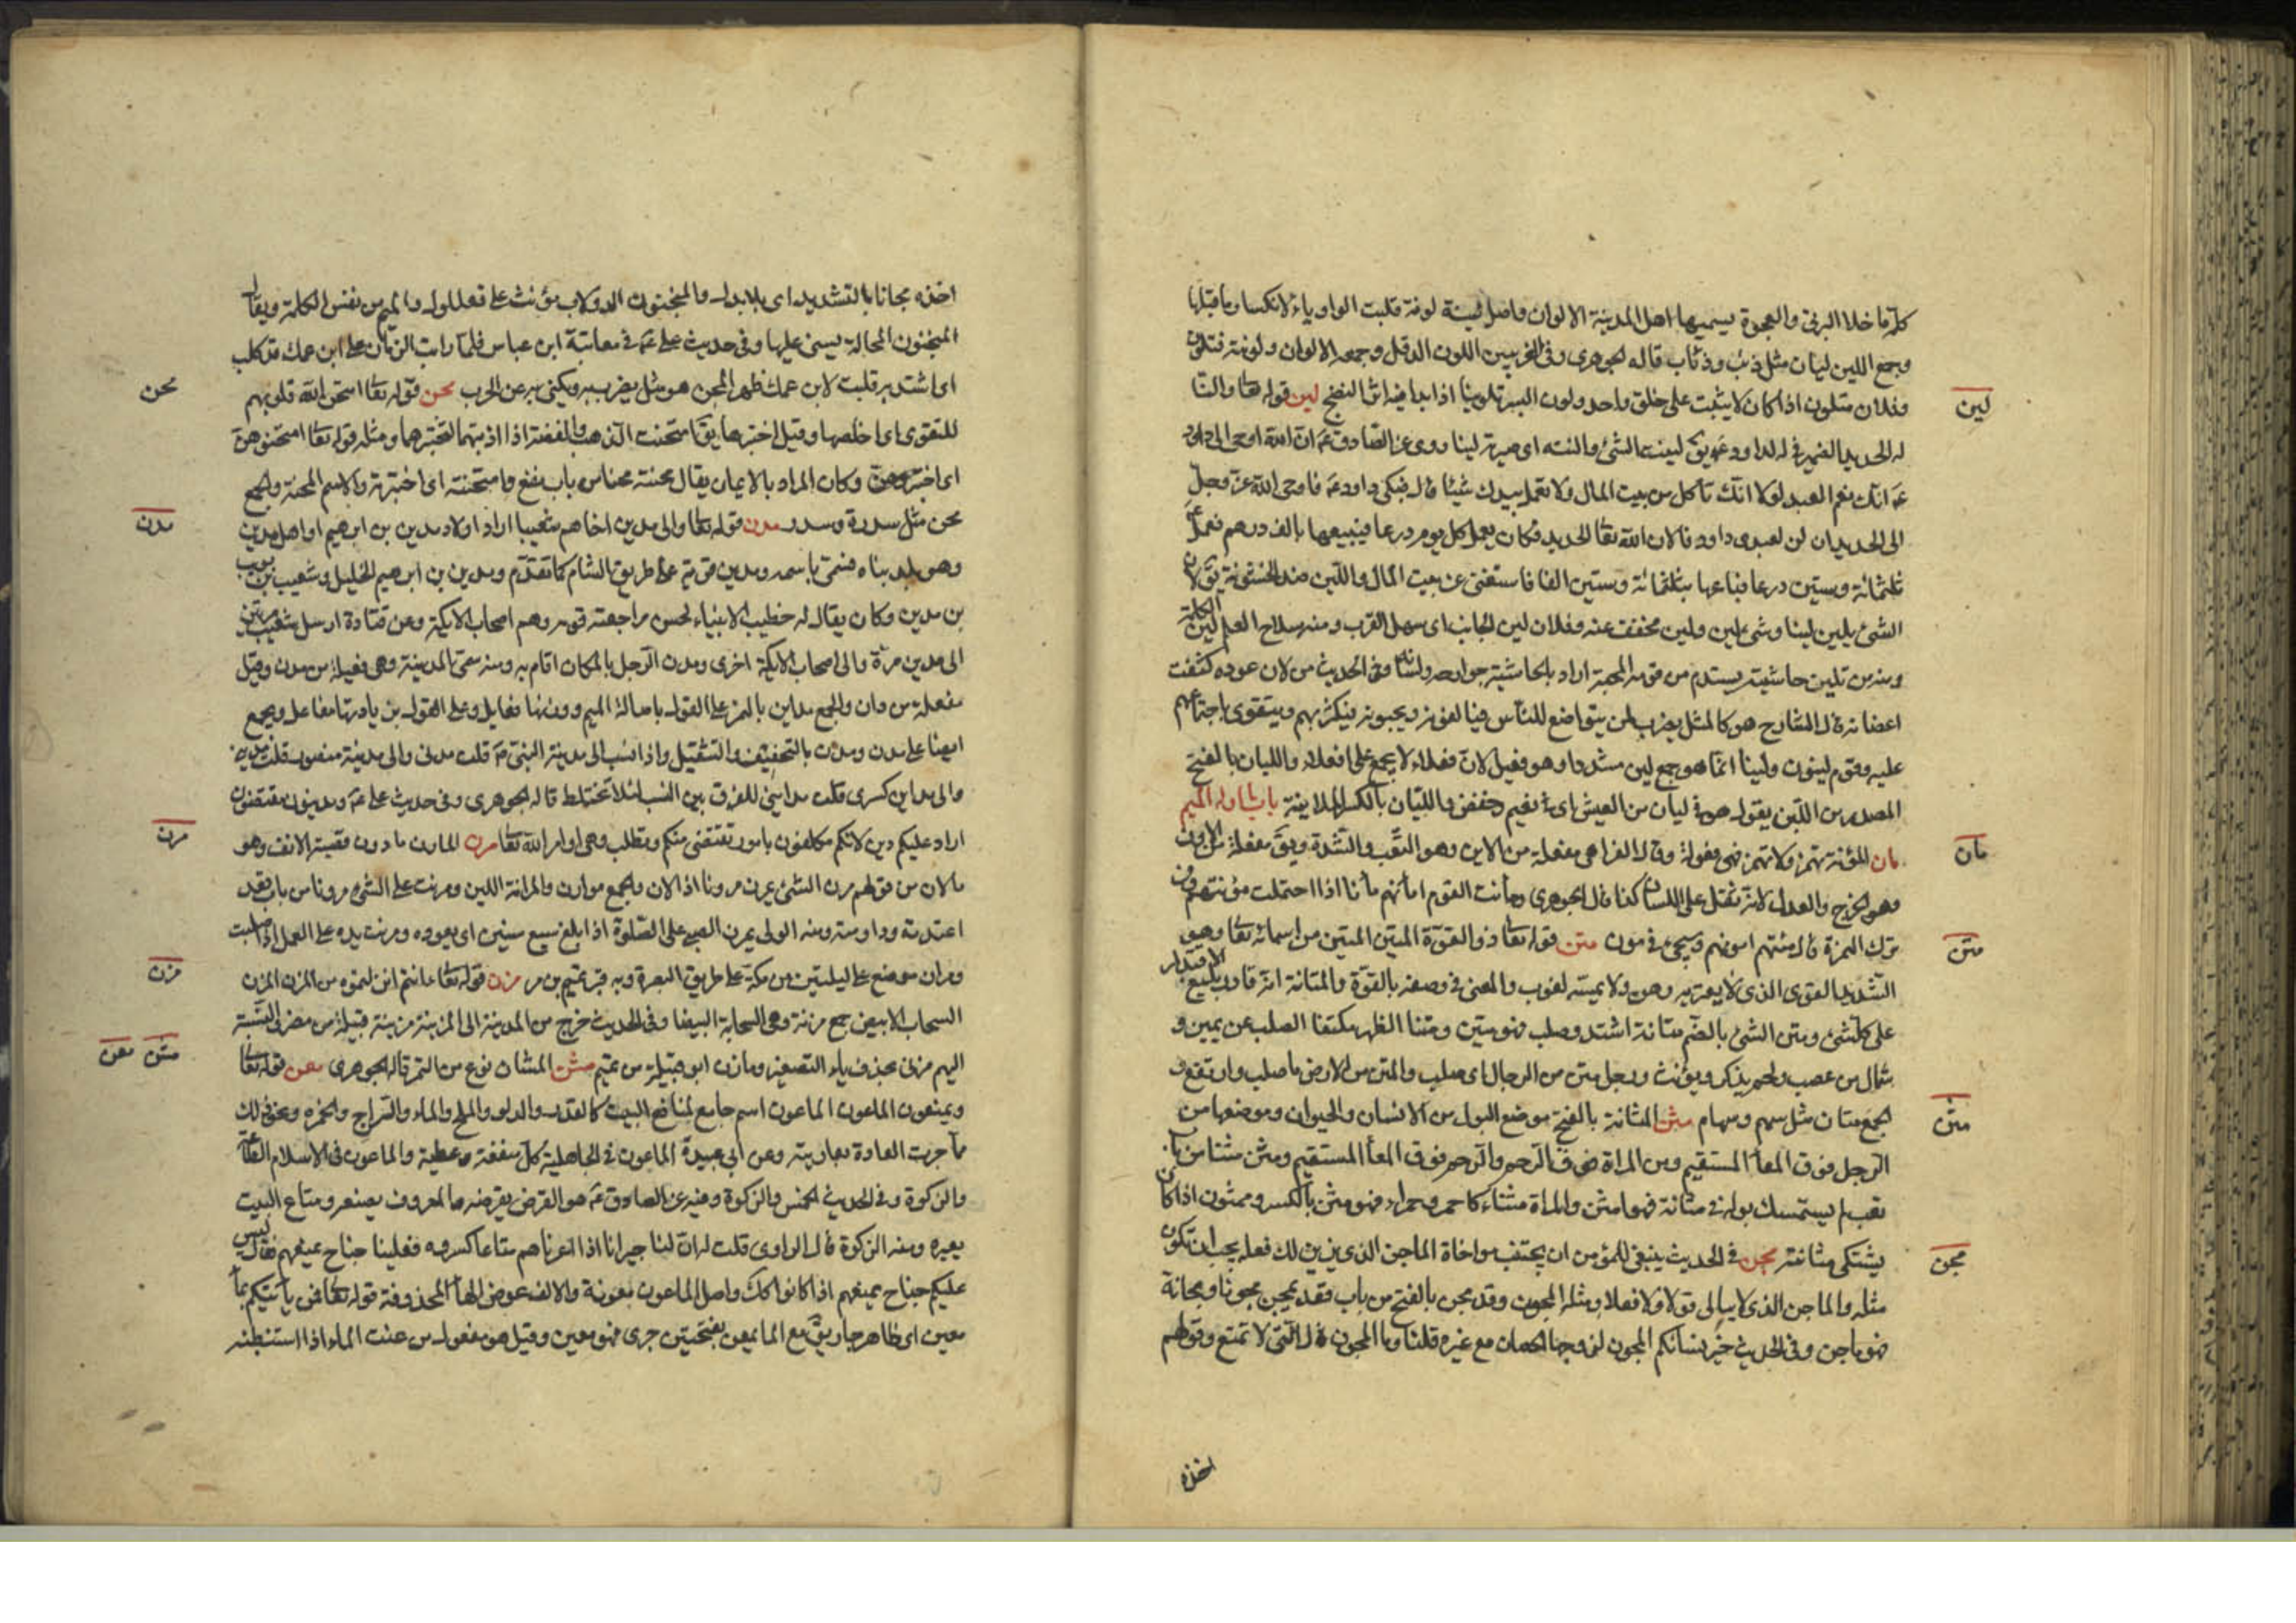 كله ما خلا البرنى والعجوة يسميها اهل المدينة الالوان واصل لينة لونة قلبت الواو ياء لانكسار ما قبلها
وجمع اللين ليان مثل ذئب وذئاب قاله الجوهرى وفى الغريبين اللون الدقل وجمعه الالوان ولونته فتلون
وفلان متلون اذا كان لا يثبت على خلق واحد ولون البسر تلوينا اذا بدا فيه اثر النضج لين قوله تعا والنا
له الحديد الضمير فى له لداود عم يق لينت الشئ والنته اى صيرته لينا وروى عن الصادق عم ان الله اوحى الى داود
عم انك نعم العبد لولا انك تأكل من بيت المال ولا تعمل بيدك شيئا قال فبكى داود عم فاوحى الله عز وجل
الى الحديد ان لن لعبدى داود فالان الله تعا الحديد فكان يعمل كل يوم درعا فيبيعها بالف درهم فعمل عم
ثلثمائة وستين درعا فباعها بثلثمائة وستين الفا فاستغنى عن بيت المال واللين ضد الخشونة يق لان
الشئ يلين لينا وشئ لين ولين مخفف عنه وفلان لين الجانب اى سهل القرب ومنه سلاح العلم لين الكلمة
ومنه من تلين حاشيته يستدم من قومه المحبة اراد بالحاشية جوارحه ولسانه وفى الحديث من لان عوده كثفت
اعضانه قال الشارح هو كالمثل يضرب لمن يتواضع للناس فيالفونه ويحبونه فيكثر بهم ويتقوى باجتماعهم
عليه وقوم لينون ولينا انما هو جمع لين مشددا وهو فيعل لان فعلاء لا يجمع على افعلاء والليان بالفتح
المصدر من اللين يقول هو فى ليان من العيش اى فى نعيم وخفض والليان بالكسر الملاينة باب ما اوله الميم
مان المؤنة تهمز ولا تهمز فهى فعولة وقال الفراء هى مفعلة من الاين وهو التعب والشدة ويق مفعلة من الاون
وهو الخرج والعدل لانه ثقل على الانسان كذا قال الجوهرى ومأنت القوم امأنهم مأنا اذا احتملت مؤنتهم ومن
ترك الهمزة قال منتهم امونهم وسيجئ فى مون متن قوله تعا ذو القوة المتين المتين من اسمائه تعا وهو
الشديد القوى الذى لا يعتريه وهن ولا يمسه لغوب والمعنى فى وصفه بالقوة والمتانة انه قادر بليغ الاقتدار
على كل شئ ومتن الشئ بالضم متانة اشتد وصلب فهو متين ومتنا الظهر مكتنفا الصلب عن يمين و
شمال من عصب ولحم يذكر ويؤنث ورجل متن من الرجال اى صلب والمتن من الارض ما صلب وارتفع و
الجمع متان مثل سهم وسهام مثن المثانة بالفتح موضع البول من الانسان والحيوان وموضعها من
الرجل فوق المعا المستقيم ومن المراة فوق الرحم والرحم فوق المعا المستقيم ومثن مثنا من باب
تعب لم يستمسك بوله فى مثانة فهو امثن والمراة مثناء كاحمر وحمراء فهو مثن بالكسر وممثون اذا كان
يشتكى مثانته مجن فى الحديث ينبغى للمؤمن ان يجتنب مواخاة الماجن الذى يزين لك فعله يحب ان تكون
مثله والماجن الذى لا يبالى قولا ولا فعلا ومثله المجون وقد مجن بالفتح من باب قعد يمجن مجونا ومجانة
فهو ماجن وفى الحديث خير نسائكم المجون لزوجها الحصان مع غيره قلنا وما المجون قال التى لا تمتنع وقولهم
اخذه
لين
مان
متن
مثن
مجن
اخذه مجانا بالتشديد اى بلا بدل والمنجنون الدولاب مؤنث على فعللول والميم من نفس الكلمة ويقال
المنجنون المحالة يسنى عليها وفى حديث على عم فى معاتبة ابن عباس فلما رايت الزمان على ابن عمك قد كلب
اى اشتد به قلبت لابن عمك ظهر المجن هو مثل يضرب به ويكنى به عن الحرب محن قوله تعا امتحن الله قلوبهم
للتقوى اى اخلصها وقيل اختبرها يق امتحنت الذهب والفضة اذا اذبتهما لتختبرهما ومثله قوله تعا امتحنوهن
اى اختبروهن وكان المراد بالايمان يقال محنته محنا من باب نفع وامتحنته اى اختبرته والاسم المحنة والجمع
محن مثل سدرة وسدر مدن قوله تعا والى مدين اخاهم شعيبا اراد اولاد مدين بن ابرهيم او اهل مدين
وهو بلد بناه فسمى باسمه ومدين قرية على طريق الشام كما تقدم ومدين بن ابرهيم الخليل وشعيب بن يويب
بن مدين وكان يقال له خطيب الانبياء لحسن مراجعته قومه وهم اصحاب الايكة وعن قتادة ارسل شعيب مرتين
الى مدين مرة والى اصحاب الايكة اخرى ومدن الرجل بالمكان اقام به ومنه سمى المدينة وهى فعيلة من مدن وقيل
مفعلة من دان والجمع مداين بالهمز على القول باصالة الميم ووزنها فعايل وعلى القول بزيادتها مفاعل ويجمع
ايضا على مدن ومدن بالتخفيف والتثقيل واذا نسب الى مدينة النبى صم قلت مدنى والى مدينة منصور قلت مدينى
والى مداين كسرى قلت مداينى للفرق بين النسب لئلا تختلط قاله الجوهرى وفى حديث على عم ومدينون مقتضون
اراد عليكم دين لانكم مكلفون بامور تقتضى منكم وتطلب وهى اوامر الله تعا مرن المارن ما دون قصبة الانف وهو
ما لان من قولهم مرن الشئ يمرن مرونا اذا لان والجمع موارن والمرانة اللين ومرنت على الشئ مرونا من باب قعد
اعتدته وداومته ومنه الولى يمرن الصبى على الصلوة اذا بلغ سبع سنين اى يعوده ومرنت يده على العمل اذا صلبت
ومران موضع على ليلتين من مكة على طريق البصرة وبه قبر تميم بن مر مزن قوله تعا ءانتم انزلتموه من المزن المزن
السحاب الابيض جمع مزنة وهى السحابة البيضا وفى الحديث خرج من المدينة الى المزينة مزينة قبيلة من مضر فى النسبة
اليهم مزنى بحذف ياء التصغير ومازن ابو قبيلة من تميم مشن المشان نوع من التمر قاله الجوهرى معن قوله تعا
ويمنعون الماعون الماعون اسم جامع لمنافع البيت كالقدر والدلو والملح والماء والسراج والخمره ونحو ذلك
مما جرت العادة بعاريته وعن ابى عبيدة الماعون فى الجاهلية كل منفعة وعطية والماعون فى الاسلام الطاعة
والزكوة وفى الحديث الخمس والزكوة وفيه عن الصادق عم هو القرض يقرضه والمعروف يصنعه ومتاع البيت
يعيره ومنه الزكوة قال الراوى قلت له ان لنا جيرانا اذا اعرناهم متاعا كسروه فعلينا جناح بمنعهم فقال ليس
عليكم جناح بمنعهم اذا كانوا كك واصل الماعون معونة والالف عوض الهاء المحذوفة قوله تعا فمن يأتيكم بماء
معين اى ظاهر جار يق معن الماء يمعن بفتحتين جرى فهو معين وقيل هو مفعول من عنت الماء اذا استنبطته
محن
مدن
مرن
مزن
مشن معن